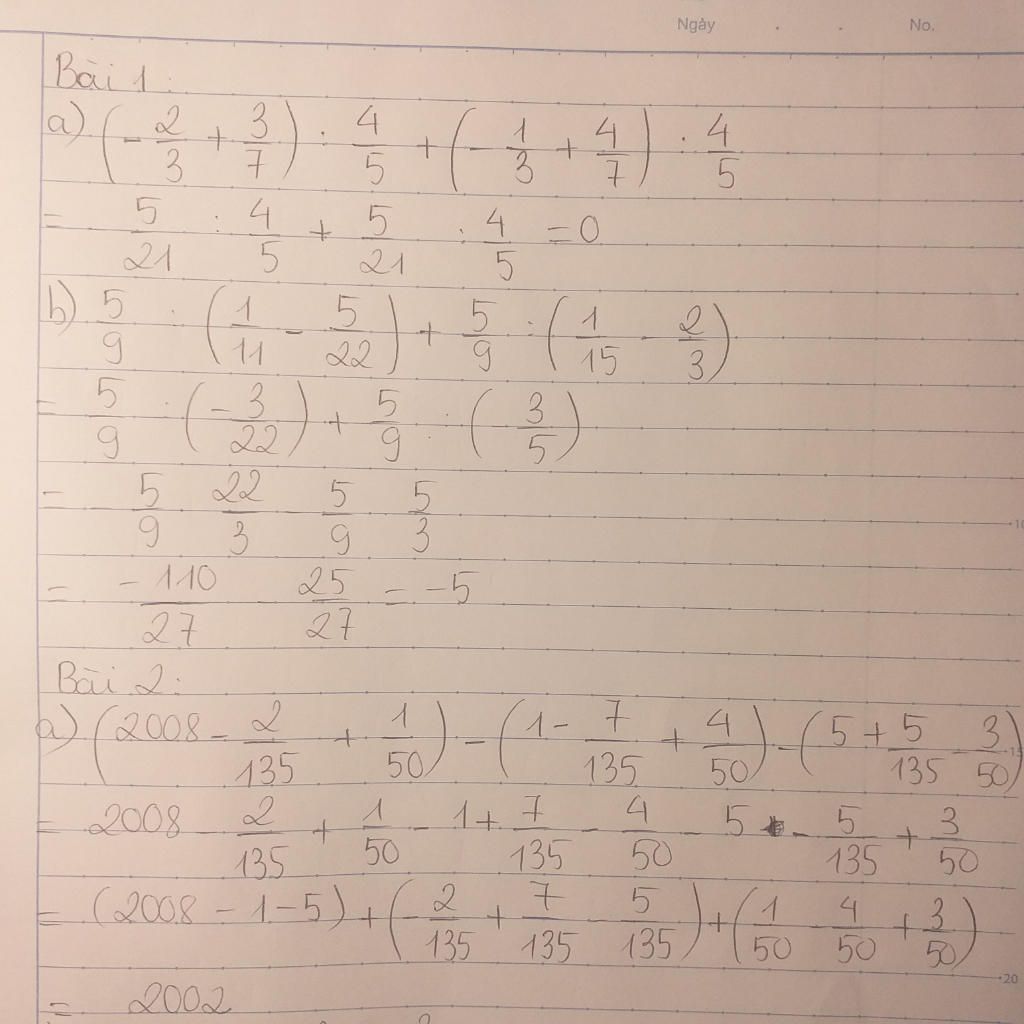 Ngày . . No.
Bài 1:
a) (-2/3 + 3/7) : 4/5 + (-1/3 + 4/7) : 4/5
= 5/21 : 4/5 + 5/21 : 4/5 = 0
b) 5/9 : (1/11 - 5/22) + 5/9 : (1/15 - 2/3)
= 5/9 : (-3/22) + 5/9 : (-3/5)
= -5/9 22/3 - 5/9 5/3
= -110/27 - 25/27 = -5
Bài 2:
a) (2008 - 2/135 + 1/50) - (1 - 7/135 + 4/50) - (5 + 5/135 - 3/50)
= 2008 - 2/135 + 1/50 - 1 + 7/135 - 4/50 - 5 - 5/135 + 3/50
= (2008 - 1 - 5) + (-2/135 + 7/135 - 5/135) + (1/50 - 4/50 + 3/50)
= 2002